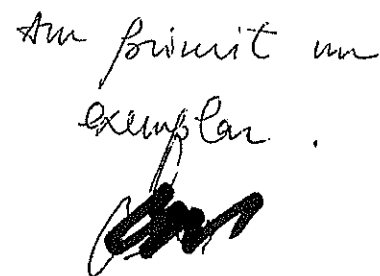 Am primit un
exemplar.